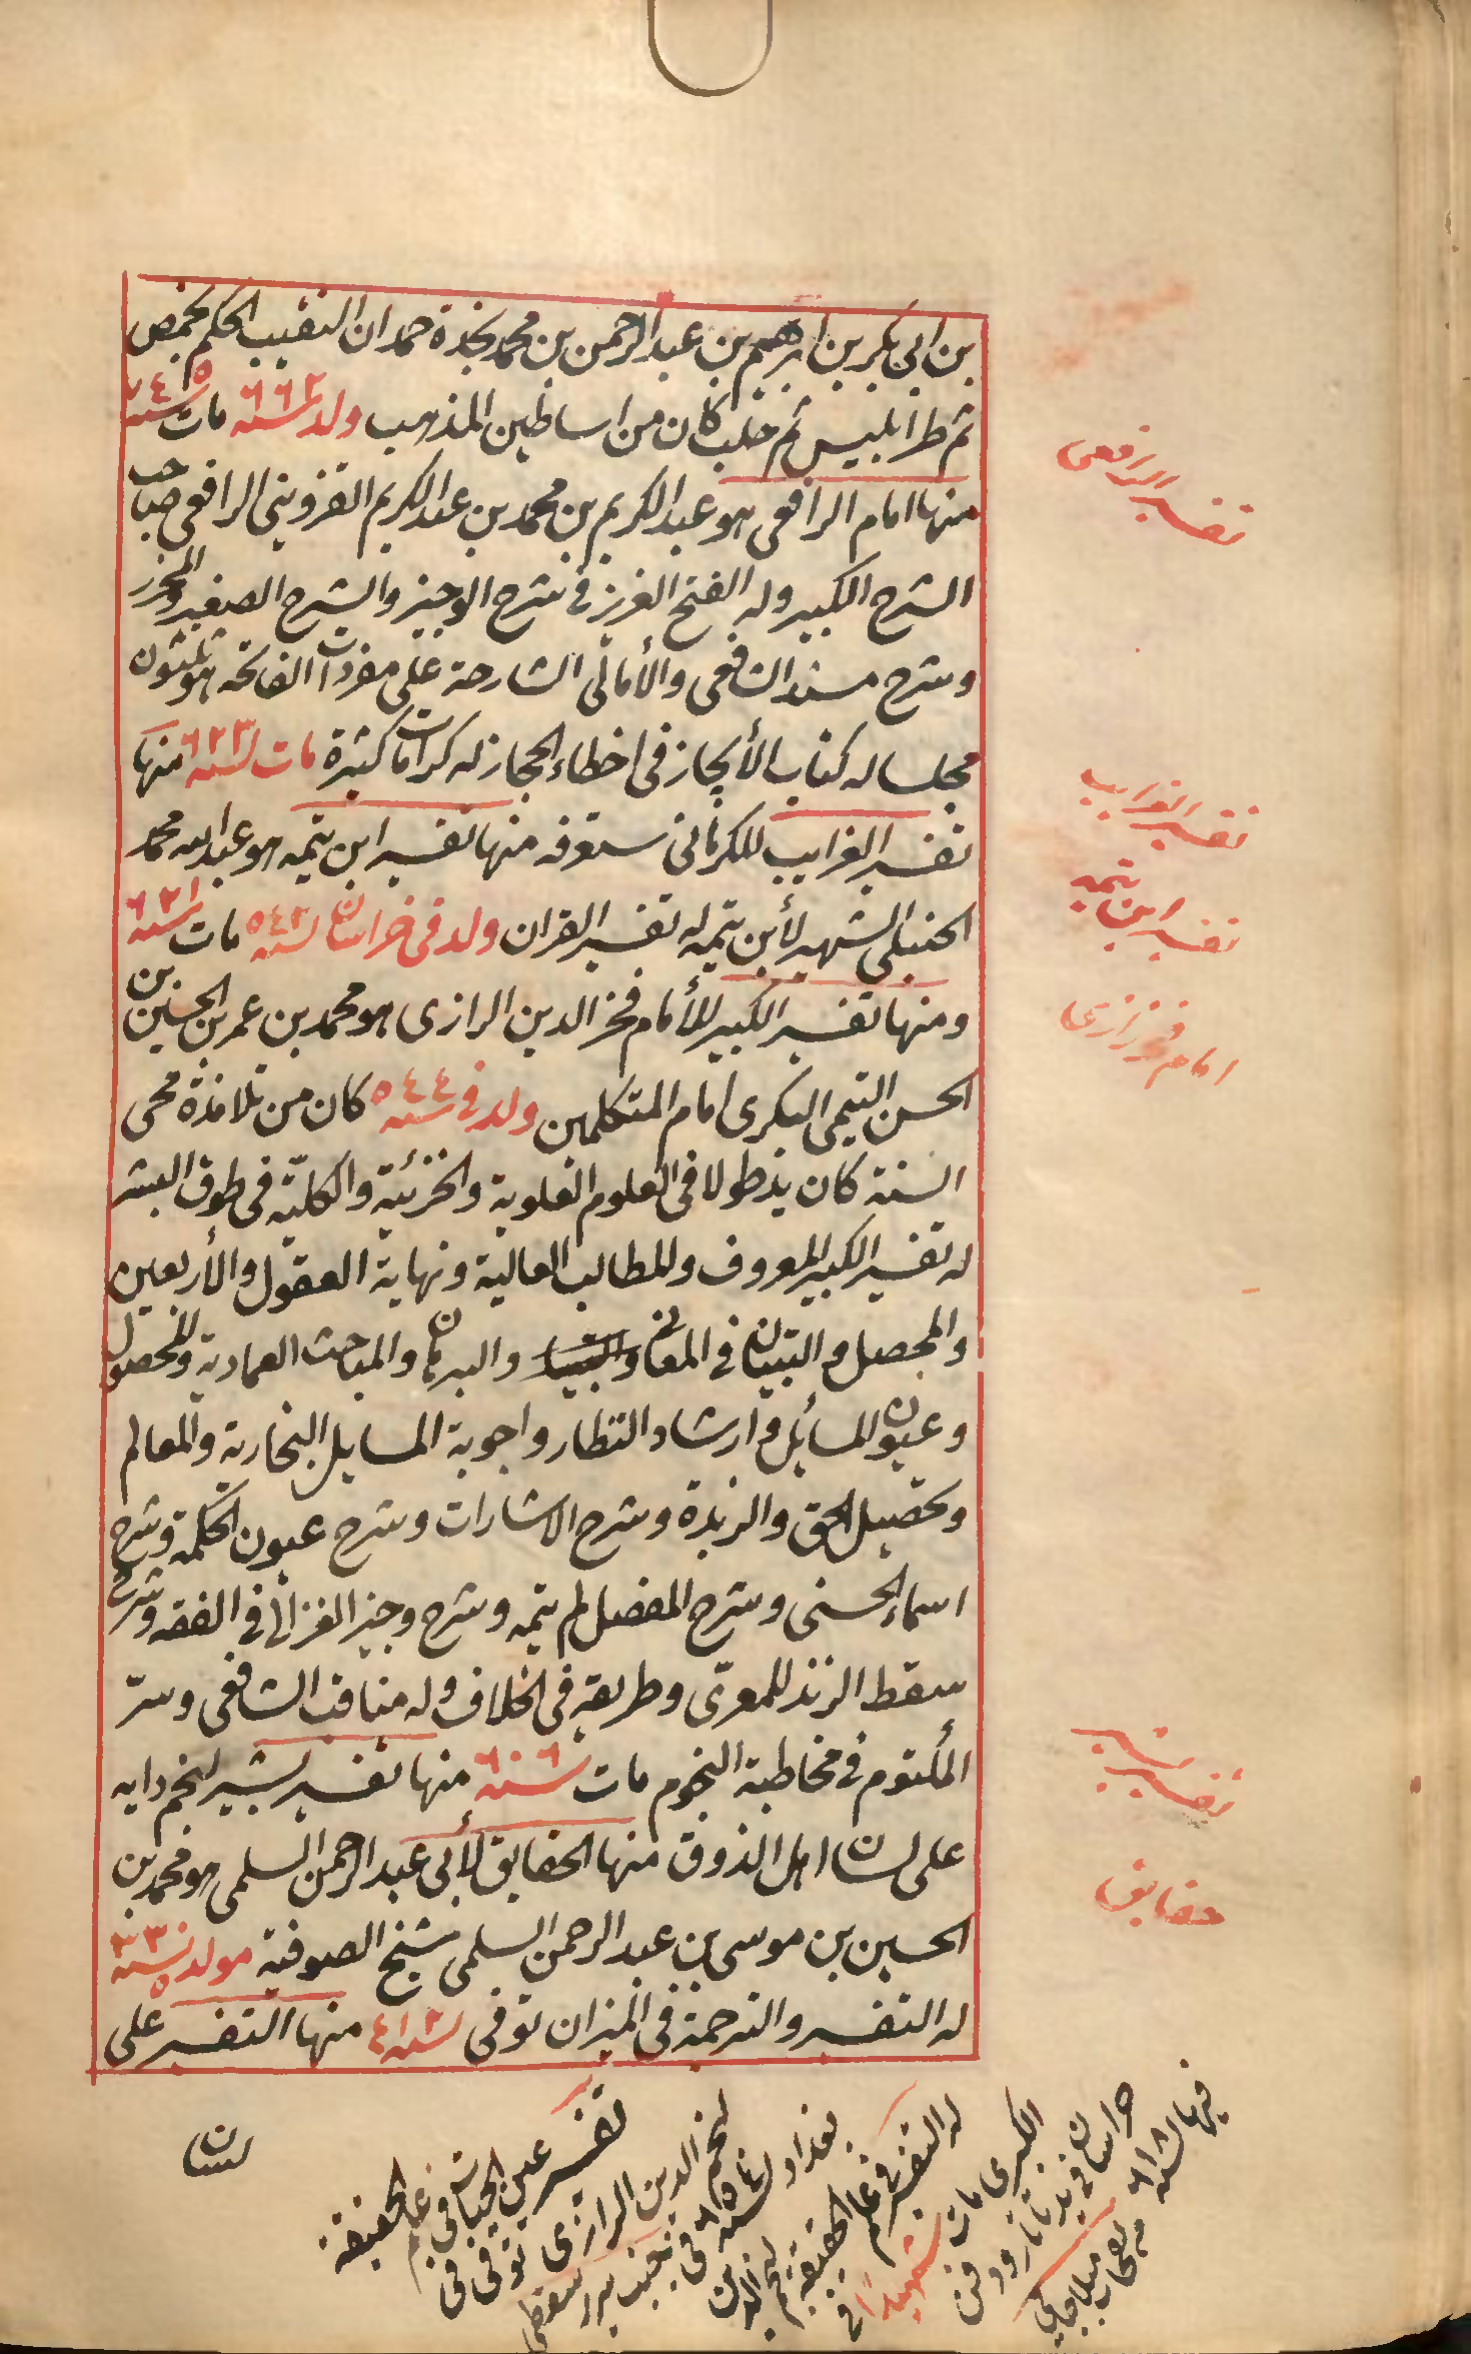 بن ابى بكر بن ابرهيم بن عبد الرحمن بن محمد بجذة حمدان النقيب الحكم بحمص
ثم طرابليس ثم حلب كان من اساطين المذهب ولد سنه ٦٦٢ مات سنه ٧٤٥
منها امام الرافعى هو عبد الكريم بن محمد بن عبد الكريم القزوينى الرافعى صاحب
الشرح الكبير وله الفتح العزيز فى شرح الوجيز والشرح الصغير والمحرر
وشرح مسند الشافعى والأمالى الشارحة على مفردات الفاتحه هو ثلثون
مجلسا له كتاب الأيجاز فى اخطاء الحجاز له كرامات كثيرة مات سنه ٦٢٣ منها
تفسير الغرايب للكرمانى ستعرفه منها تفسير ابن تيميه هو عبد الله محمد
الحنبلى الشهير لأبن تيميه له تفسير القران ولد فى خراسان سنه ٥٤٢ مات سنه ٦٢١
ومنها تفسير الكبير للأمام فخر الدين الرازى هو محمد بن عمر بن الحسين بن
الحسن التيمى البكرى امام المتكلمين ولد فى سنه ٥٤٤ كان من تلامذة محى
السنة كان يد طولا فى العلوم العلوية والجزئية والكلية فى طوق البشر
له تفسير الكبير المعروف وللمطالب العالية ونهاية العقول والأربعين
والمحصل والتبيان فى المعانى والبيان والبرهان والمباحث العمادية والمحصول
وعيون المسائل وارشاد النظار واجوبة المسايل البخارية والمعالم
وتحصيل الحق والزبدة وشرح الاشارات وشرح عيون الحكمة وشرح
اسماء الحسنى وشرح المفصل لم يتمه وشرح وجيز الغزالى فى الفقه وشرح
سقط الزند للمعرّى وطريقه فى الخلاف وله مناقب الشافعى وسرّ
المكتوم فى مخاطبة النجوم مات سنه ٦٠٦ منها تفسير بشير لنجم دايه
على لسان اهل الذوق منها الحقايق لأبى عبد الرحمن السلمى هو محمد بن
الحسين بن موسى بن عبد الرحمن السلمى شيخ الصوفية مولد سنه ٣٣٠
له التفسير والترجمة فى الميزان توفى سنه ٤١٢ منها التفسير على
لسان
تفسير الرافعى
تفسير الغرايب
تفسير ابن تيميه
امام فخر رازى
تفسير بشير
حقايق
تفسير عين الحياة فى علم الحقيقه
لنجم الدين الرازى توفى فى
بغداد سنه ٦٥٤ فى جنب سرر سقطى
له التفسير فى علم الحقيقه لنجم الدين
الكبرى مات شهيدًا فى
خراسان فى يد تاتار ودفن
فيها سنه ٦١٨ من نفحات ملا جامى